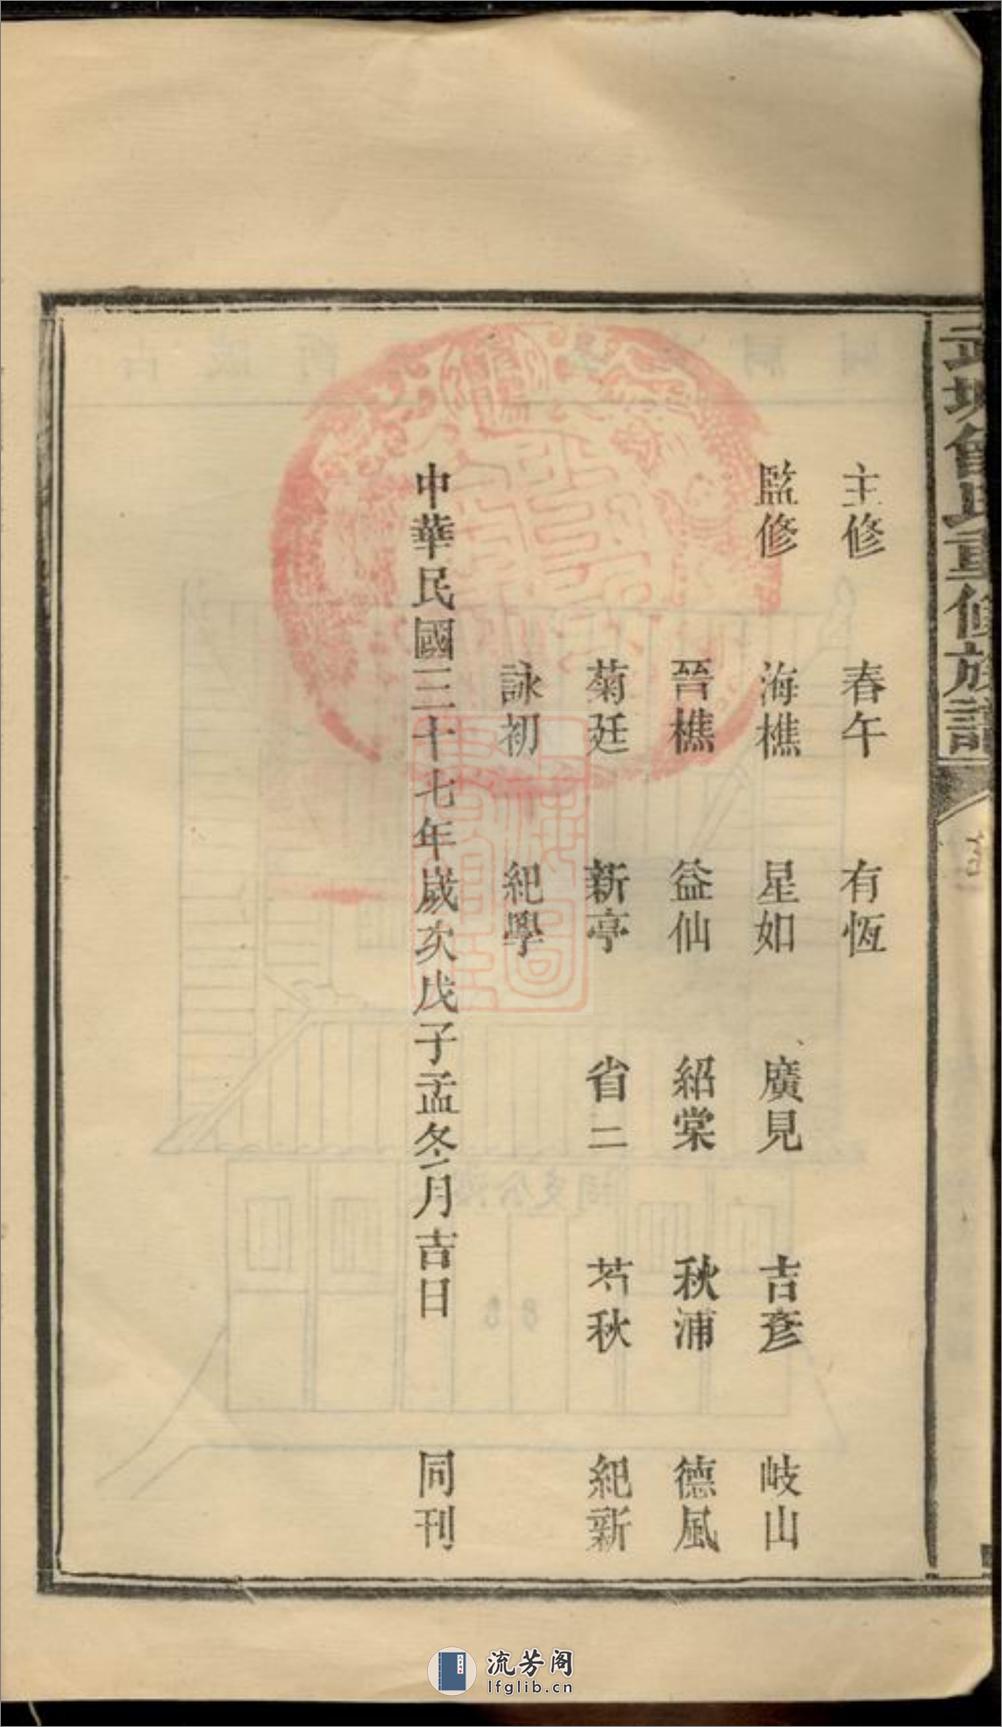 武城曾氏重修族譜
主修 春午 有恆
監修 海樵 星如 廣見 吉彥 岐山
晉樵 益仙 紹棠 秋浦 德風
菊廷 新亭 省二 芍秋 紀新
詠初 紀學
中華民國三十七年歲次戊子孟冬月吉日 同刊
流芳阁
lfglib.cn